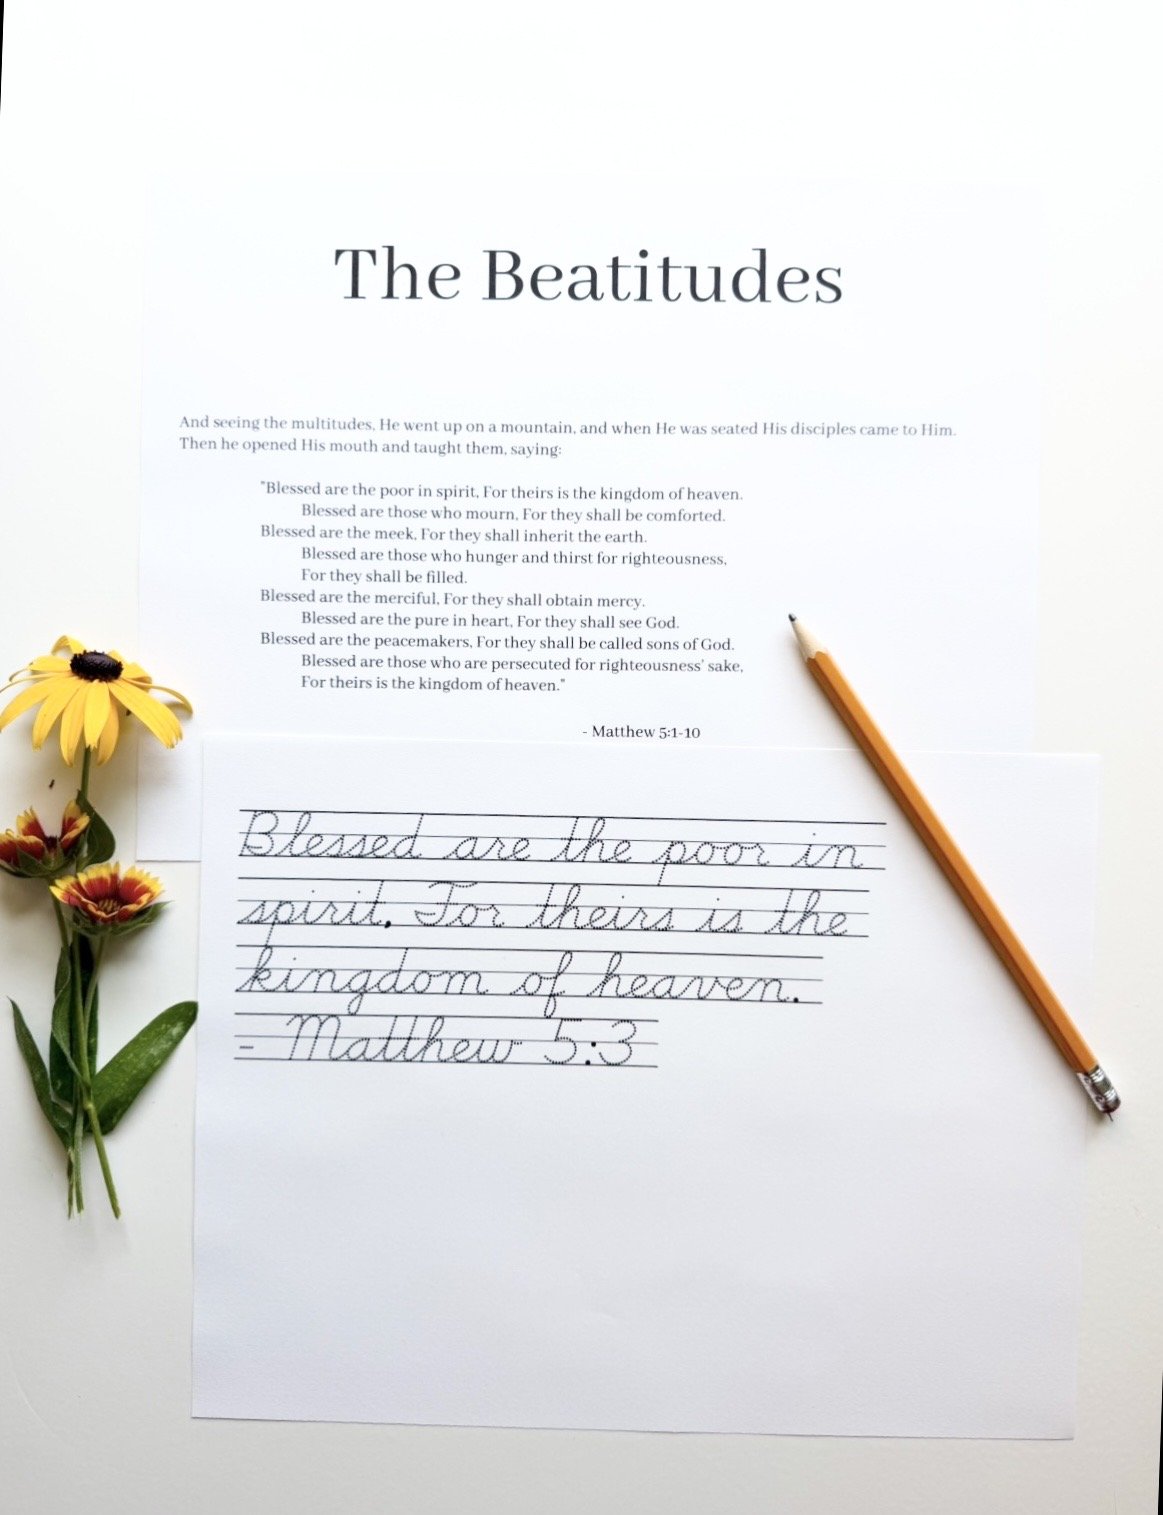 The Beatitudes
And seeing the multitudes, He went up on a mountain, and when He was seated His disciples came to Him.
Then he opened His mouth and taught them, saying:
"Blessed are the poor in spirit, For theirs is the kingdom of heaven.
Blessed are those who mourn, For they shall be comforted.
Blessed are the meek, For they shall inherit the earth.
Blessed are those who hunger and thirst for righteousness,
For they shall be filled.
Blessed are the merciful, For they shall obtain mercy.
Blessed are the pure in heart, For they shall see God.
Blessed are the peacemakers, For they shall be called sons of God.
Blessed are those who are persecuted for righteousness' sake,
For theirs is the kingdom of heaven."
- Matthew 5:1-10
Blessed are the poor in
spirit, For theirs is the
kingdom of heaven.
- Matthew 5:3